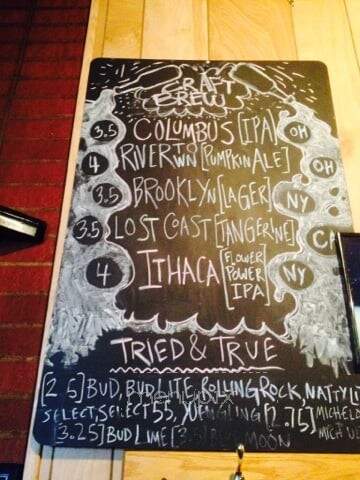 CRAFT
BREW
3.5 COLUMBUS [IPA] OH
4 RIVERTOWN [PUMPKIN ALE] OH
3.5 BROOKLYN [LAGER] NY
3.5 LOST COAST [TANGERINE] CA
4 ITHACA [FLOWER POWER IPA] NY
TRIED & TRUE
[2.5] BUD, BUD LITE, ROLLING ROCK, NATTY LI
SELECT, SELECT 55, YUENGLING [2.75] MICHELO
[3.25] BUD LIME [3.5] MOON MICH U